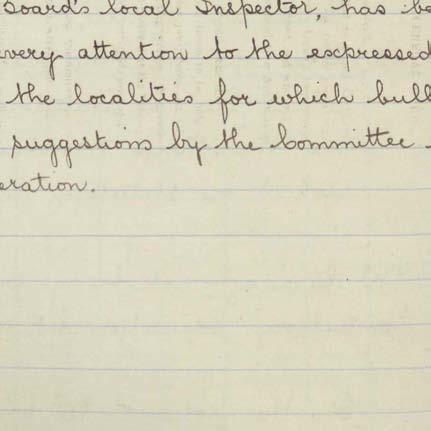 Board's local Inspector, has be
every attention to the expressed
the localities for which bull
suggestions by the Committee
eration.